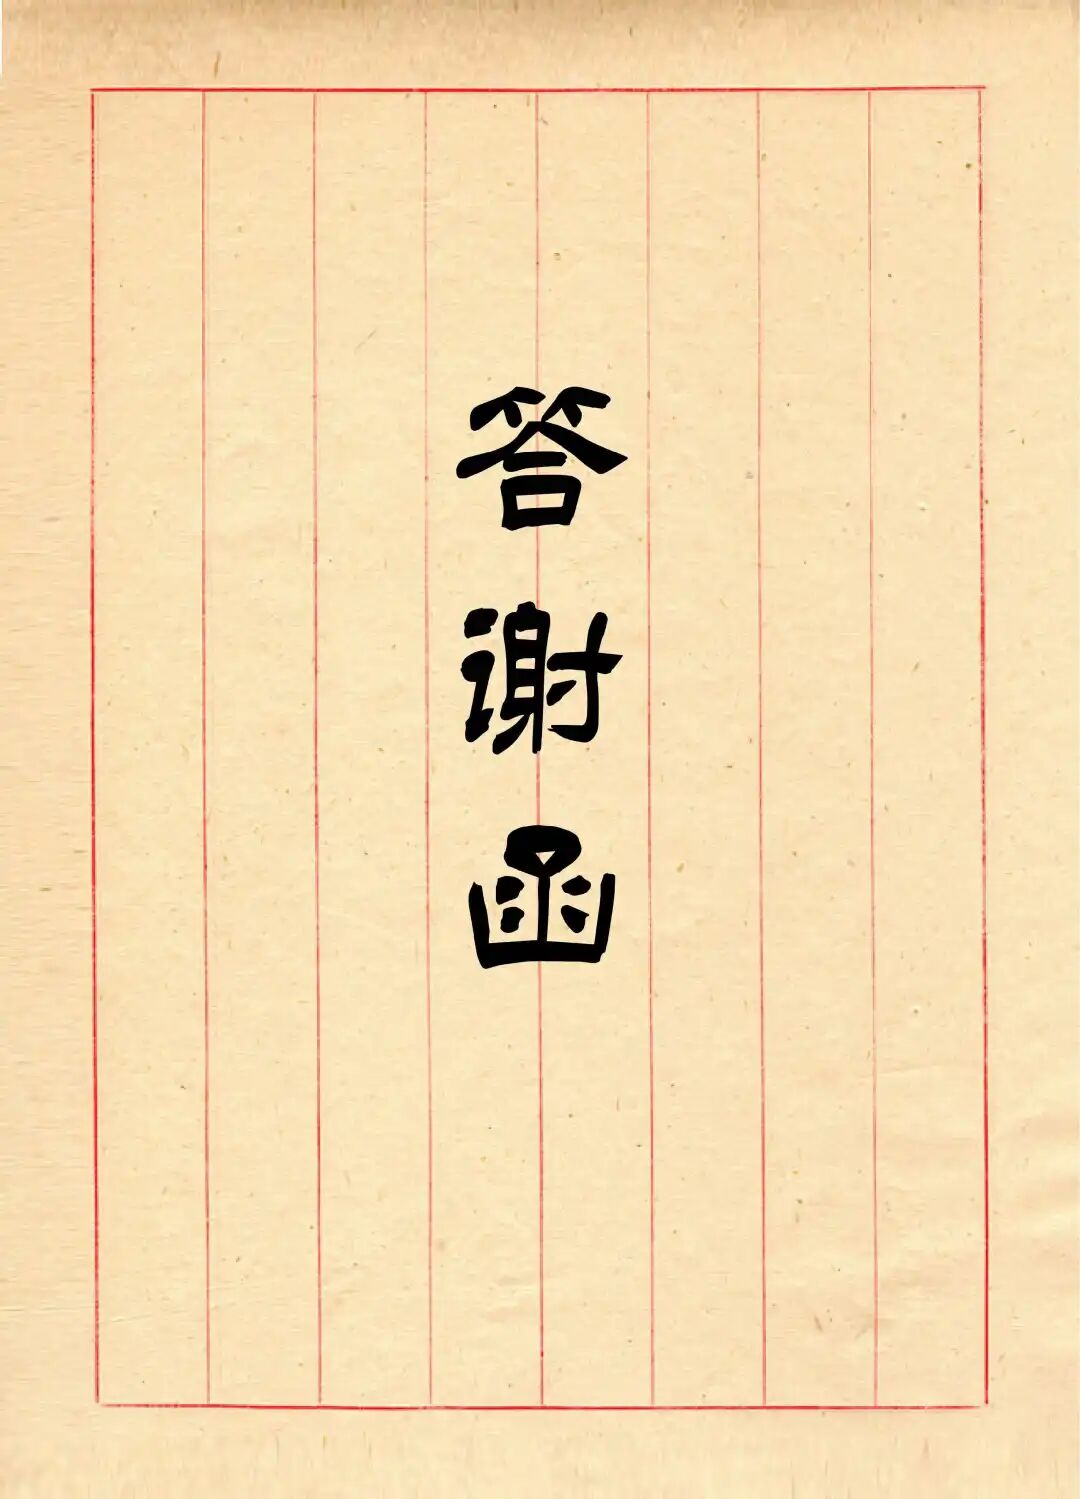 答谢函